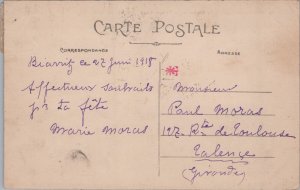 CARTE POSTALE
CORRESPONDANCE
ADRESSE
Biarritz ce 27 Juin 1918
Affectueux souhaits
pr ta fête
Marie Moras
Monsieur
Paul Moras
197 Rte de Toulouse
Talence
(Gironde)